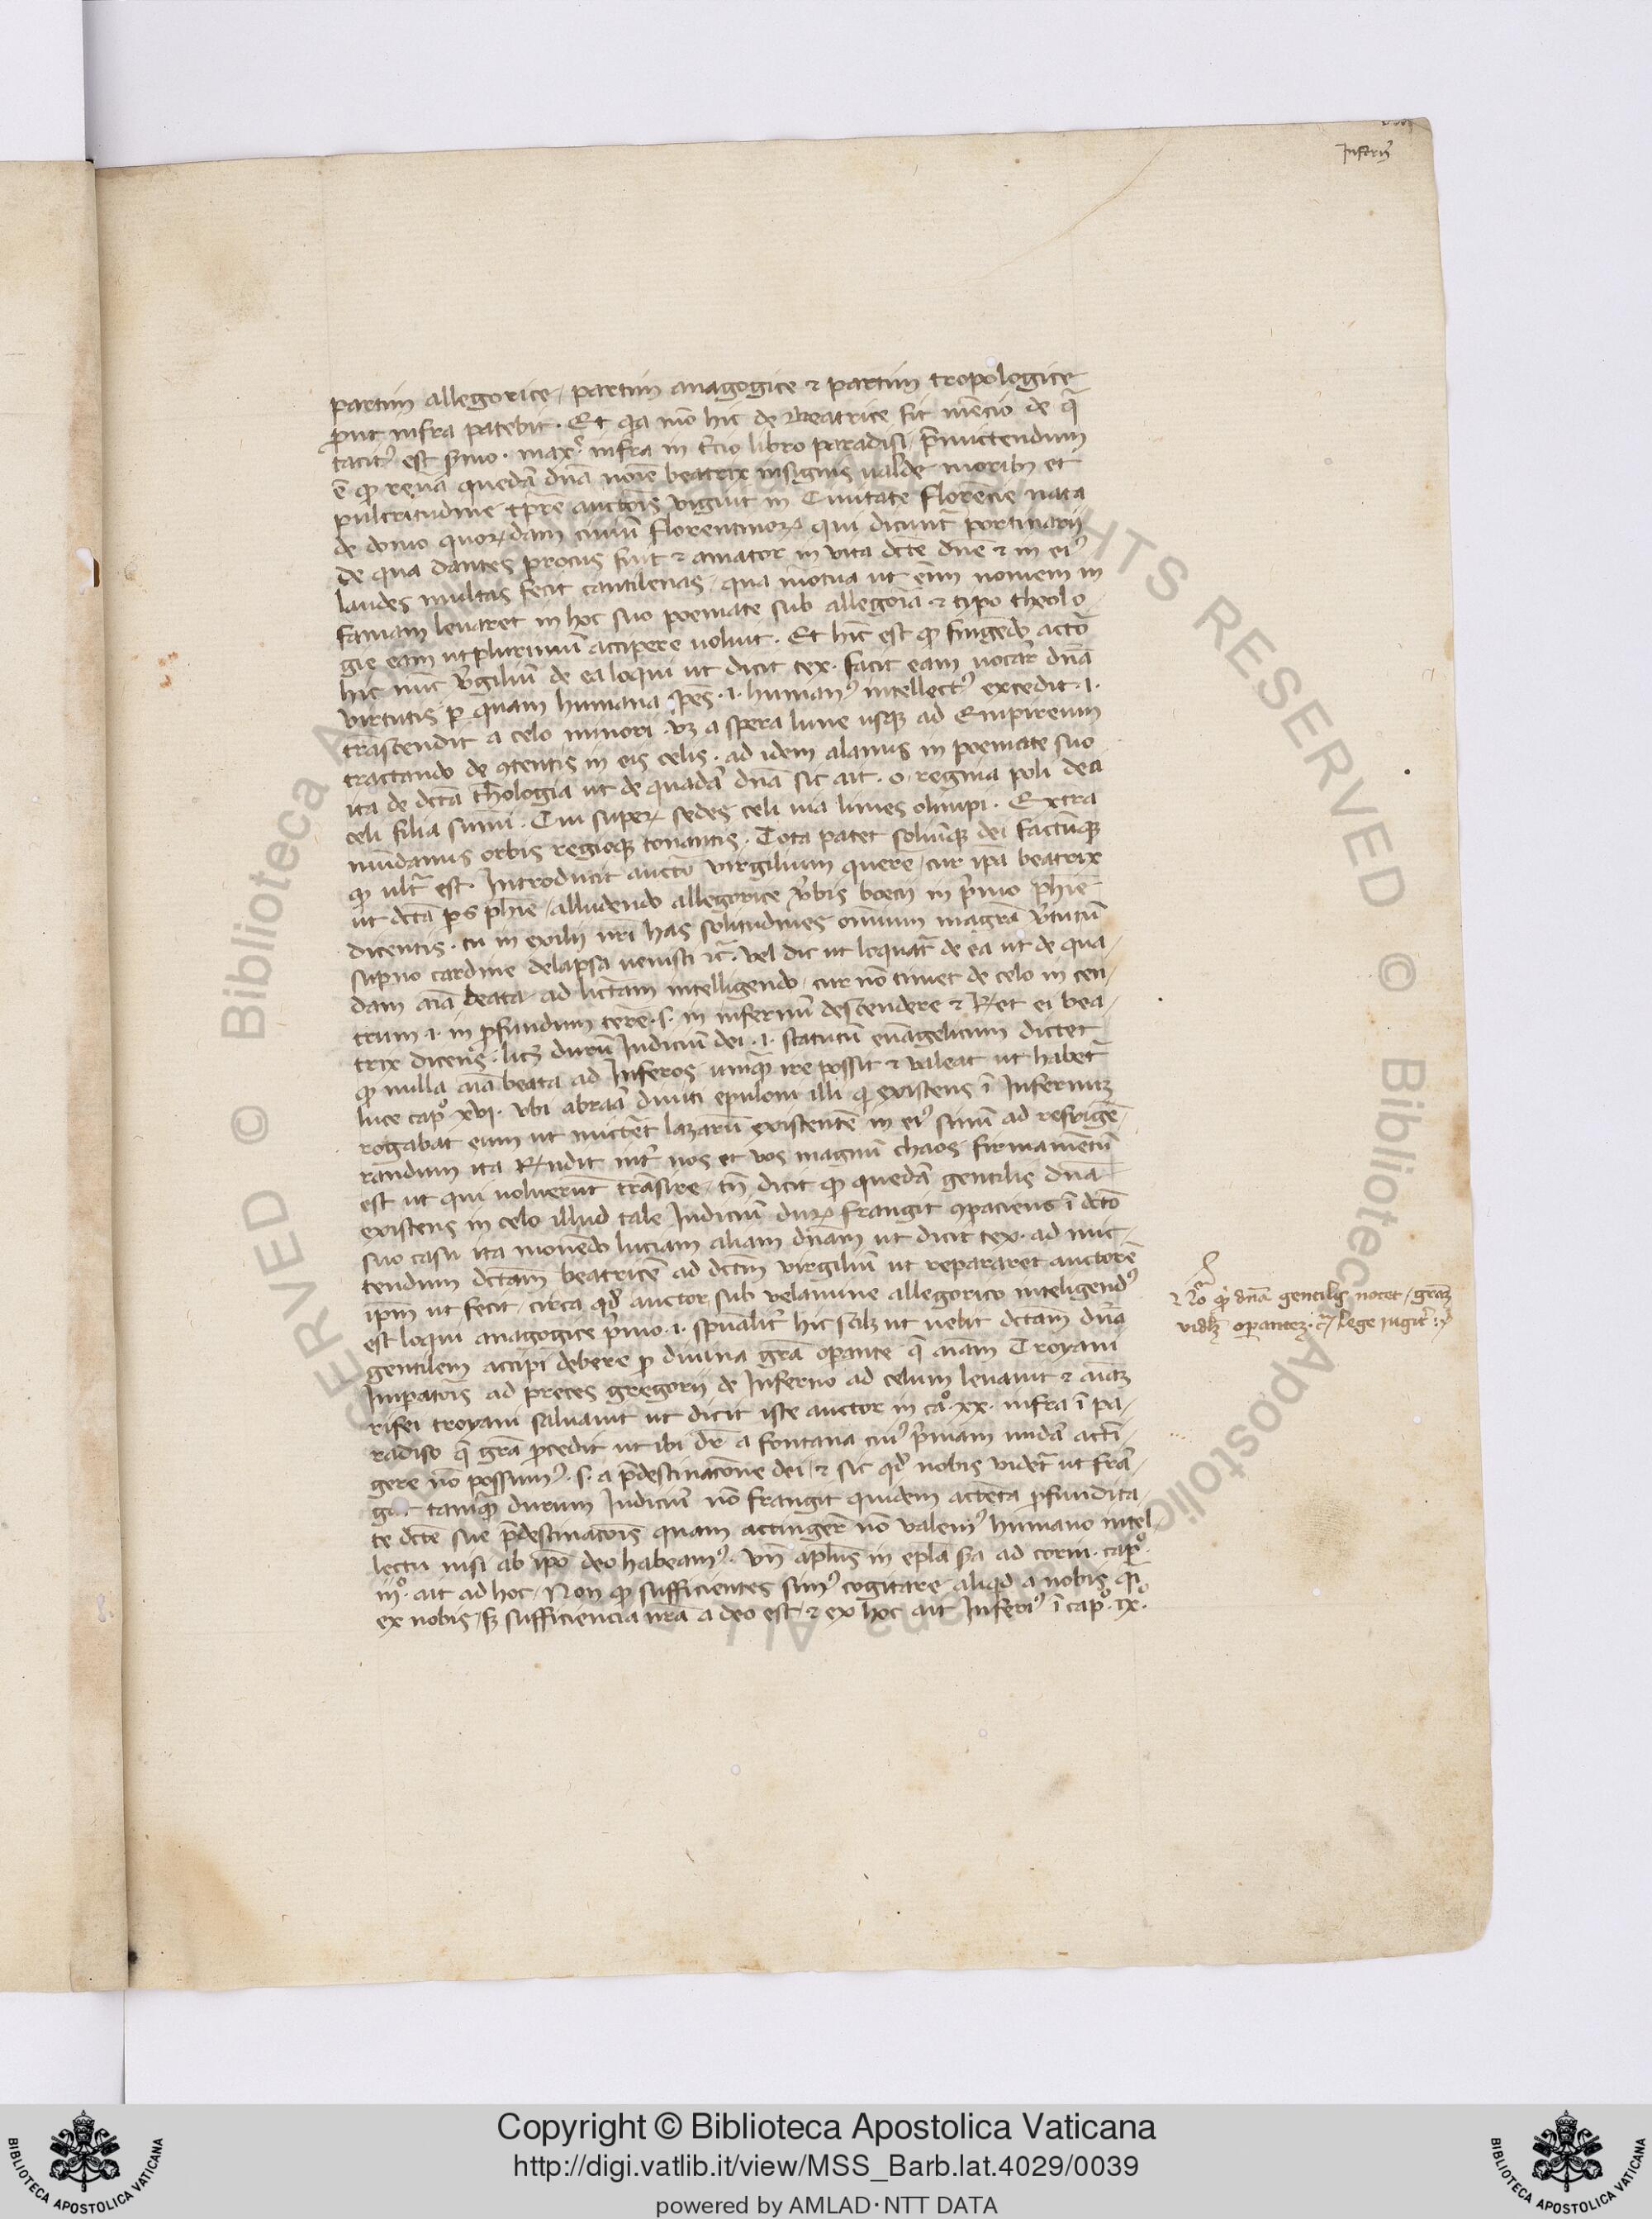 Inferius
partim allegorice / partim anagogice & partim tropologice
put infra patebit. Et qa mo hic de Beatrice fit mencio de qa
tacite est smo. max. infra in tcio libro paradisi / pmictendum
e qd reuā quedā dnā noīe beatrix insignis ualde moribus et
pulcritudine tpre auctoīs viguit in Ciuitate Florencie nata
de domo quorumdam ciuiū florentinorum qui dicuntr portinarii
de qua dantes procus fuit & amator in vita dcte dne & in eius
laudes multas fecit cantilenas / qua mortua ut eius nomen in
famam leuaret in hoc suo poemate sub allegoria & typo theolo-
gie eam ut plurimū accipere uoluit. Et hinc est qd fingendo actō
hic nūc vgiliū de ea loqui ut dicit tex. facit eam uocari dnā
virtutis p quam humana spēs .i. humanus intellectus excedit .i.
trāscendit a celo minori .vz a spera lune usque ad Empireum
tractando de contentis in eis celis. ad idem alanus in poemate suo
ita de dctā theologia ut de quadā dnā sic ait. o regina poli dea
celi filia sūmi. Cui superum sedes celi uia limes olimpi. Extra
mūdanus orbis regioque tonantis. Tota patet soliūque dei factūque
qd ultra est. Introducit auctō virgilium quere / cur ipā beatrix
ut dctā ps phie / alludendo allegorice vbis boecii in pmo phie
dicentis. tu in exilii nri has solitudines omnium magrā vtutū
supno cardine delapsa uenisti &c. vel dic ut loquatr de ea ut de qua-
dam aīa beata / ad licteram intelligendo / cur nō timet de celo in cen-
trum .i. in pfundum tere .s. in infernū descendere & Ret ei bea-
trix dicens. licz durū Iudiciū dei .i. statutū euāgelicum dictet
qd nulla aīa beata ad Inferos unquam ire possit & ualeat ut habetr
luce capo xvi. vbi abraā diuiti epuloni illi qi existens ī Infernum
rogabat eum ut micteret lazarū existentē in eius sinū ad refrige-
randum ita Rndit intr nos et vos magnū chaos firmamentū
est ut qui uoluerunt trāsire / tn dicit qd quedā gentilis dnā
existens in celo illud tale Iudiciū durum frangit compaciens ī dcto
suo casu ita mouēdo luciam aliam dnām ut dicit tex. ad mic-
tendum dctam beatricē ad dctm virgiliū ut repararet auctorē
ipm ut fecit / circa qd auctor sub velamine allegorico inteligendus
est loqui anagogice pmo .i. spualiter hic scilz ut uebit dctam dnā
gentilem accipi debere p diuina grā operante que aīam Troyani
Impatoīs ad preces gregorii de Inferno ad celum leuauit & aīam
rifei troyani saluauit ut dicit iste auctor in cao. xx. infra ī pa-
radiso que grā pcedit ut ibi dr a fontana cuius pmam undā acti-
gere nō possumus .s. a pdestinacōne dei / & sic qd nobis videtr ut frā-
gat tamquam durum Iudiciū nō frangit quidem actēta pfundita-
te dcte sue pdestinacois quam actingere nō valemus humano intel-
lectu nisi ab ipo deo habeamus. vn aplus in epla sa ad corin. capo.
iiio. ait ad hoc / Non qd sufficientes simus cogitare aliquid a nobis qi
ex nobis / sz sufficiencia nrā a deo est / & ex hoc ait Inferius ī capo. ix.
& Ro qd dnā gentilis uocet / grām
vidlz operantez. lege iugiter
Copyright © Biblioteca Apostolica Vaticana
http://digi.vatlib.it/view/MSS_Barb.lat.4029/0039
powered by AMLAD·NTT DATA
BIBLIOTECA APOSTOLICA VATICANA
BIBLIOTECA APOSTOLICA VATICANA